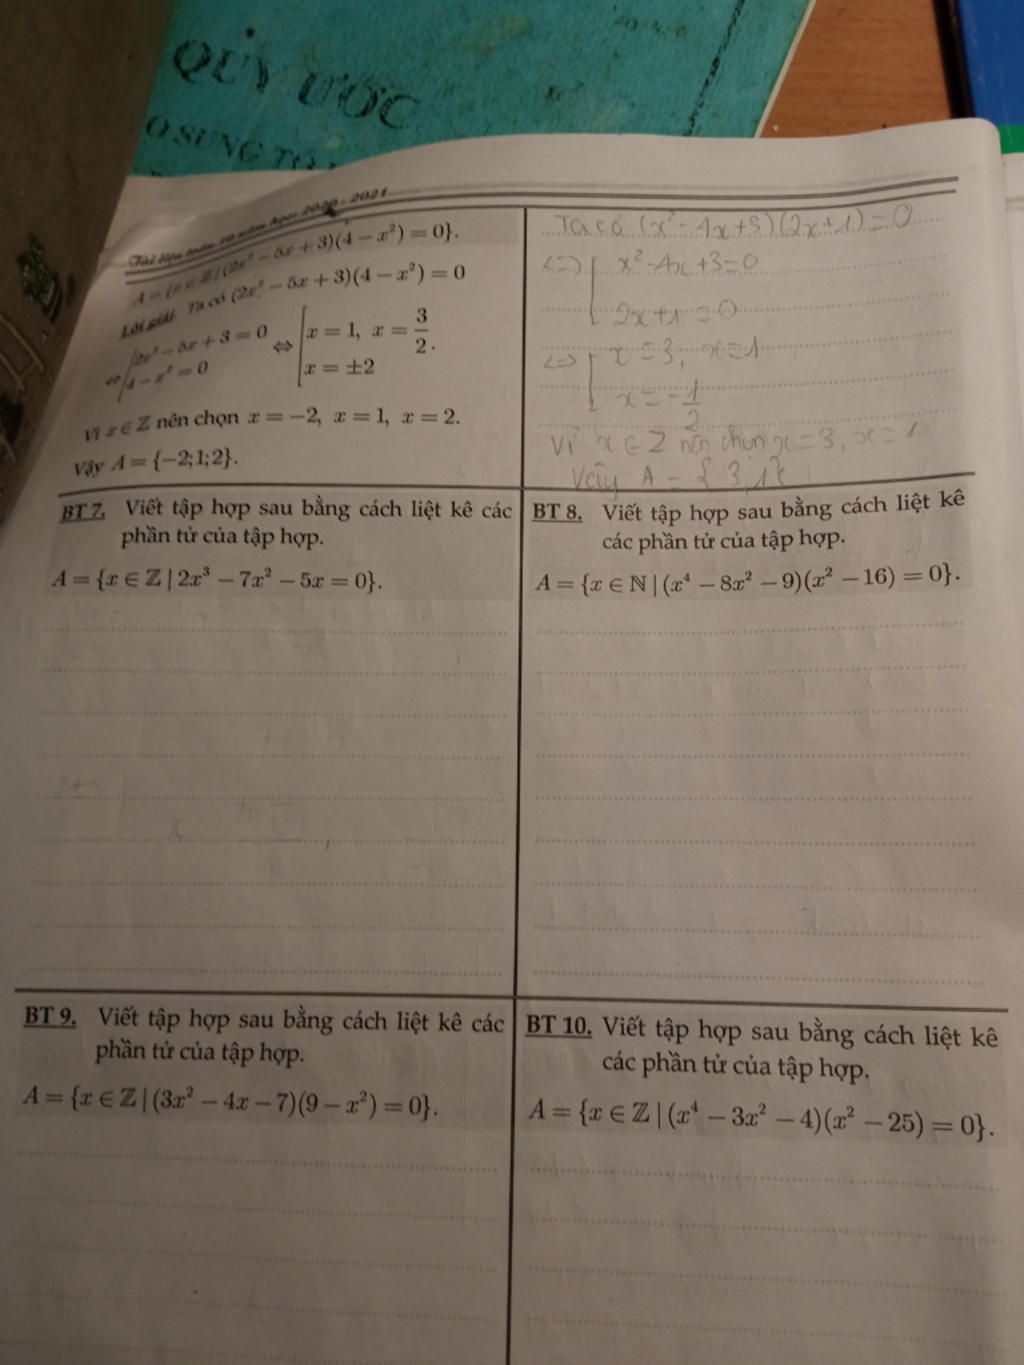 QUY ƯỚC
Tài liệu toán 10 năm học 2020 - 2021
A = {x ∈ ℤ | (2x² − 5x + 3)(4 − x²) = 0}.
Lời giải. Ta có (2x² − 5x + 3)(4 − x²) = 0
⇔ [2x² − 5x + 3 = 0 ⇔ [x = 1, x = 3/2.
4 − x² = 0 x = ±2
Vì x ∈ ℤ nên chọn x = −2, x = 1, x = 2.
Vậy A = {−2; 1; 2}.
Ta có (x² − 4x + 3)(2x + 1) = 0
<=> [x² − 4x + 3 = 0
2x + 1 = 0
<=> [x = 3, x = 1
x = −1/2
Vì x ∈ Z nên chọn x = 3, x = 1
Vậy A = {3; 1}
BT 7. Viết tập hợp sau bằng cách liệt kê các
phần tử của tập hợp.
A = {x ∈ ℤ | 2x³ − 7x² − 5x = 0}.
BT 8. Viết tập hợp sau bằng cách liệt kê
các phần tử của tập hợp.
A = {x ∈ ℕ | (x⁴ − 8x² − 9)(x² − 16) = 0}.
BT 9. Viết tập hợp sau bằng cách liệt kê các
phần tử của tập hợp.
A = {x ∈ ℤ | (3x² − 4x − 7)(9 − x²) = 0}.
BT 10. Viết tập hợp sau bằng cách liệt kê
các phần tử của tập hợp.
A = {x ∈ ℤ | (x⁴ − 3x² − 4)(x² − 25) = 0}.